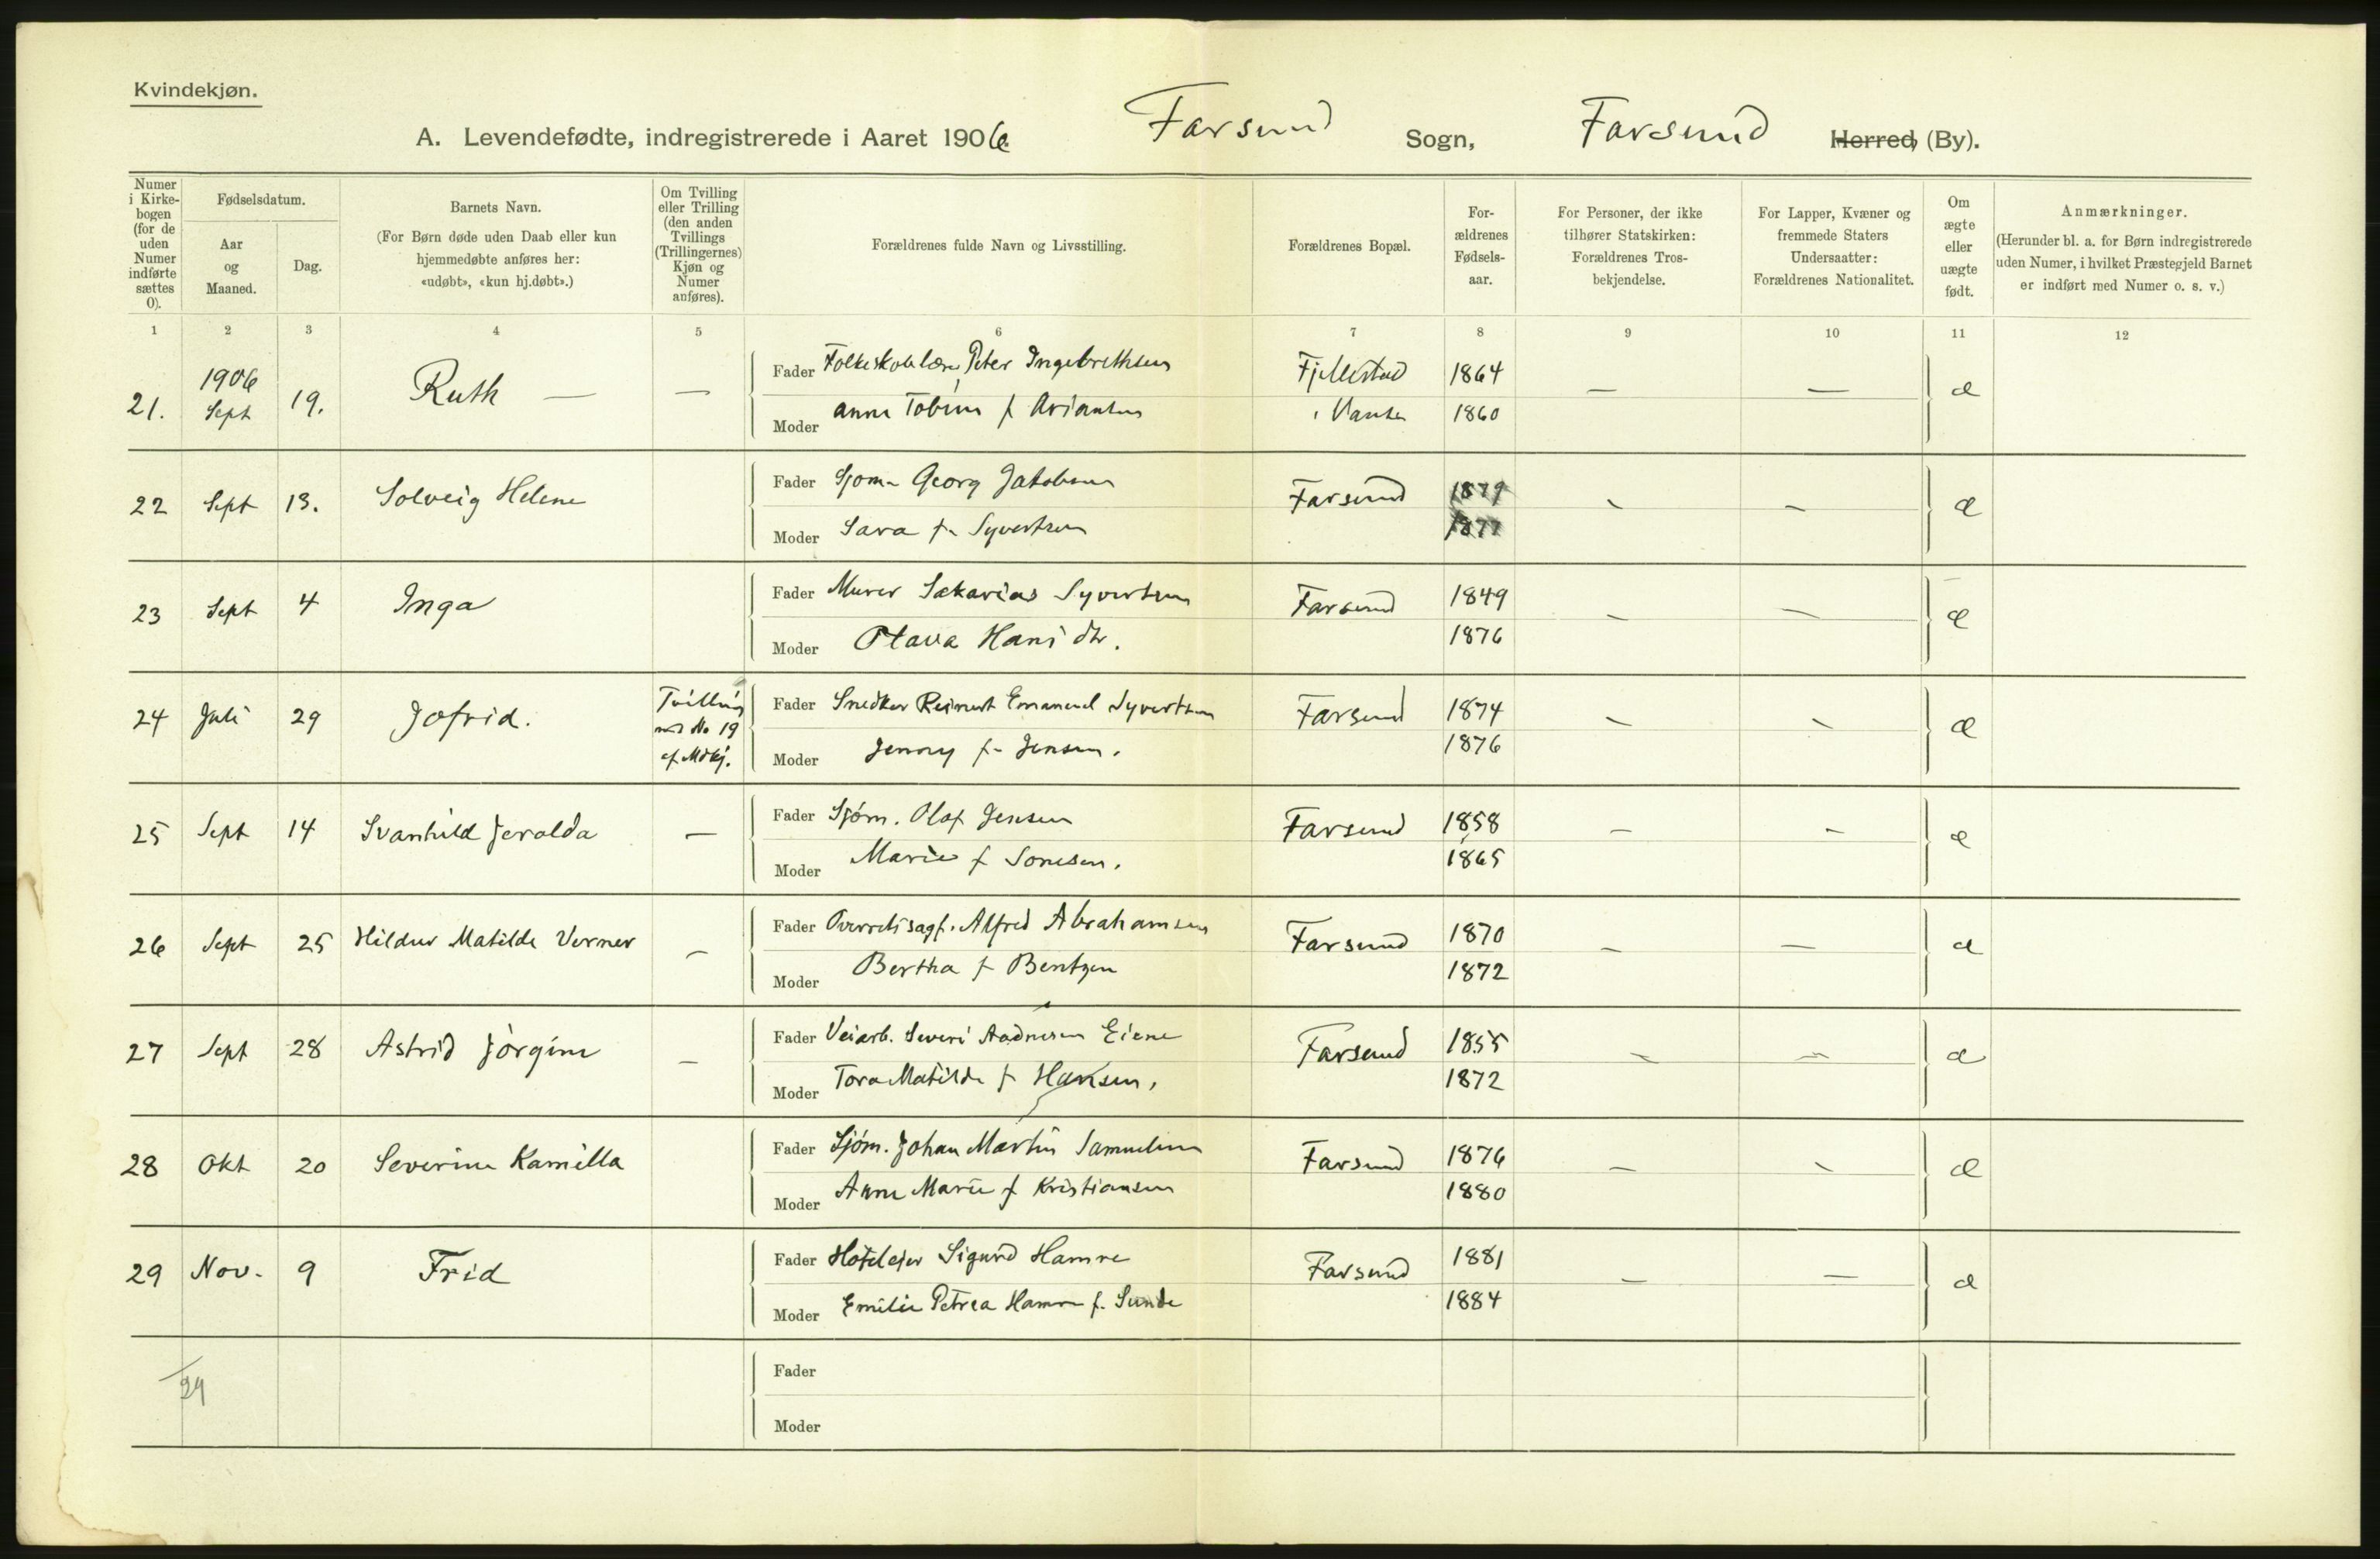 Kvindekjøn.
A. Levendefødte, indregistrerede i Aaret 1906. Farsund Sogn, Farsund Herred, (By).
Numer i Kirkebogen (for de uden Numer indførte sættes 0).
Fødselsdatum.
Aar og Maaned.
Dag.
Barnets Navn.
(For Børn døde uden Daab eller kun hjemmedøbte anføres her: «udøbt», «kun hj.døbt».)
Om Tvilling eller Trilling (den anden Tvillings (Trillingernes) Kjøn og Numer anføres).
Forældrenes fulde Navn og Livsstilling.
Forældrenes Bopæl.
Forældrenes Fødselsaar.
For Personer, der ikke tilhører Statskirken: Forældrenes Trosbekjendelse.
For Lapper, Kvæner og fremmede Staters Undersaatter: Forældrenes Nationalitet.
Om ægte eller uægte født.
Anmærkninger.
(Herunder bl. a. for Børn indregistrerede uden Numer, i hvilket Præstegjeld Barnet er indført med Numer o. s. v.)
1 2 3 4 5 6 7 8 9 10 11 12
21. 1906 Sept 19. Ruth — — Fader Folkeskolelærer Peter Ingebrethsen Fjellestad 1864 — — æ
Moder Anna Tobine f Ariansen i Vanse 1860
22 Sept 13. Solveig Helene Fader Sjøm. Georg Jakobsen Farsund 1879 – – æ
Moder Sara f. Syvertsen 1877
23 Sept 4 Inga Fader Murer Sakarias Syvertsen Farsund 1849 – – æ
Moder Otava Hansdtr. 1876
24 Juli 29 Jofrid. Tvilling med No 19 af Mdkj. Fader Snedker Reinert Emanuel Syvertsen Farsund 1874 – – æ
Moder Jenny f. Jensen. 1876
25 Sept 14 Svanhild Jeralda — Fader Sjøm. Olaf Jensen Farsund 1858 – – æ
Moder Marie f Tønesen. 1865
26 Sept 25 Hildur Matilde Verner – Fader Overretssagf. Alfred Abrahamsen Farsund 1870 – – æ
Moder Bertha f Bentzen 1872
27 Sept 28 Astrid Jørgine – Fader Veiarb. Severi Aadnesen Eiene Farsund 1855 – – æ
Moder Tora Matilde f Hansen. 1872
28 Okt 20 Severine Kamilla Fader Sjøm. Johan Martin Samuelsen Farsund 1876 – – æ
Moder Anne Marie f Kristiansen 1880
29 Nov. 9 Frid Fader Hoteleier Sigurd Hamre Farsund 1881 – – æ
Moder Emilie Petrea Hamre f. Sunde 1884
29 Fader
Moder